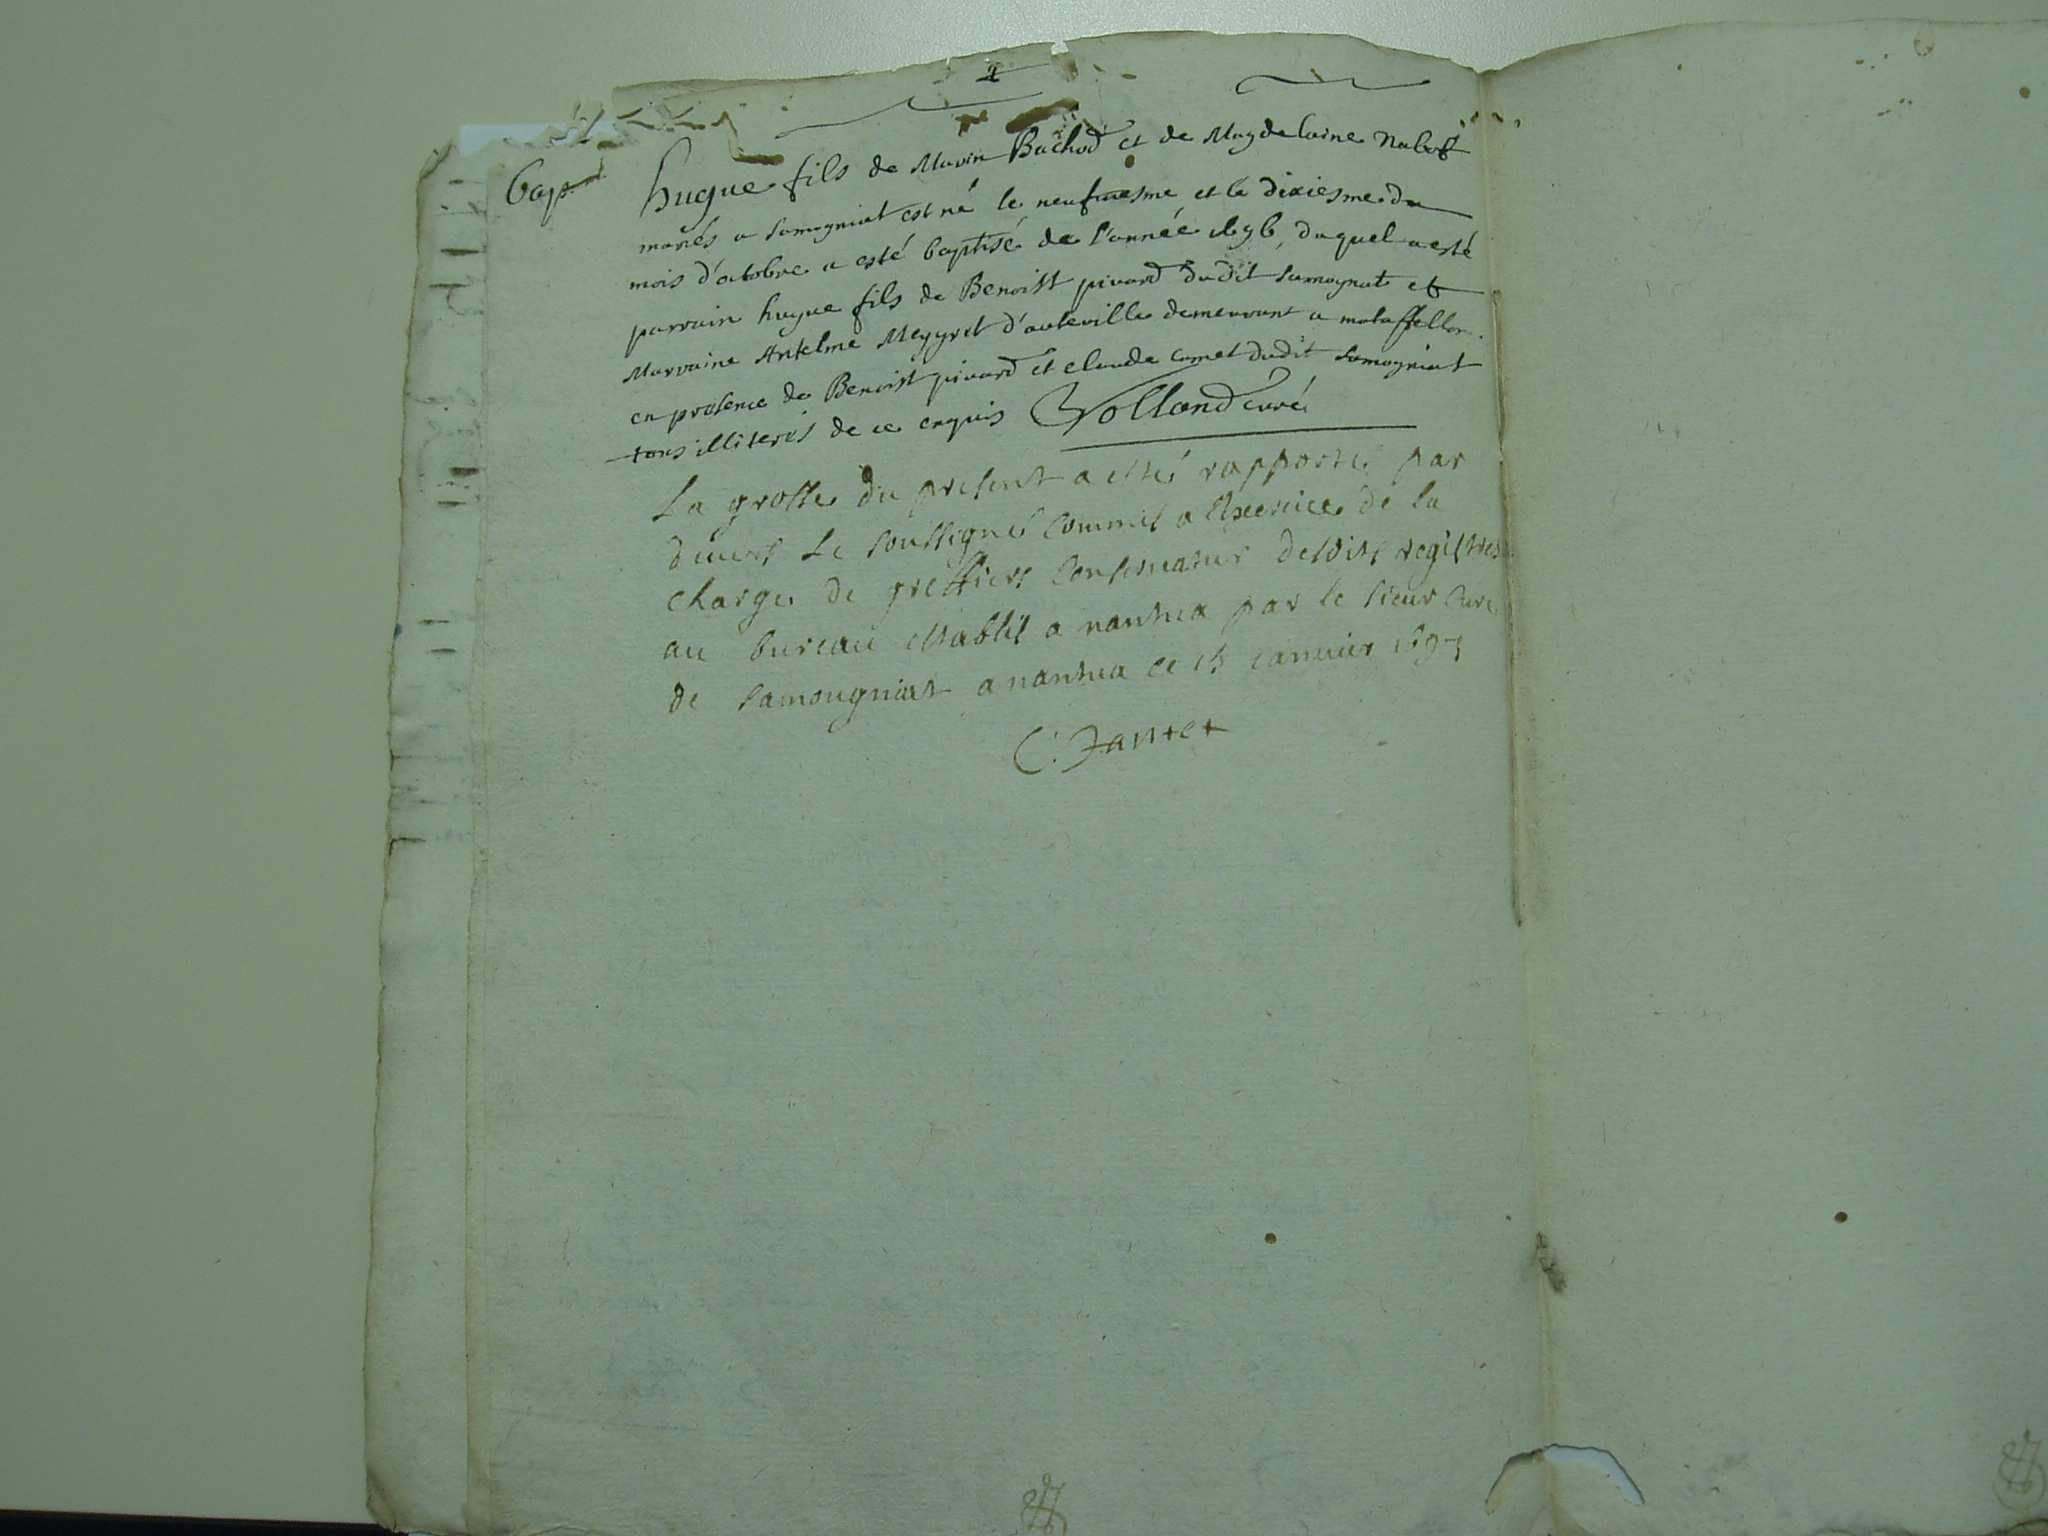 Bap
hugue fils de Marin Bachod et de Magdelaine
mariés a samogniat est né le neufuiesme et le dixiesme du
mois d'octobre a esté baptisé de l'année 1696, duquel a esté
parrain hugue fils de Benoist pivard dudit samogniat et
Marraine Antelme Meygret d'auteville demeurant a mataffellon
en presence de Benoist pivard et claude comet dudit samogniat
tous illiterés de ce enquis Volland curé
La grosse du present a esté rapportée par
deuers Le soussigné commis a l'Exercice de la
charge de greffiers conseruateur desdits registres
au bureau establit a nantua par le sieur Curé
de samougniat a nantua ce 15 januier 1697
C. Jantet